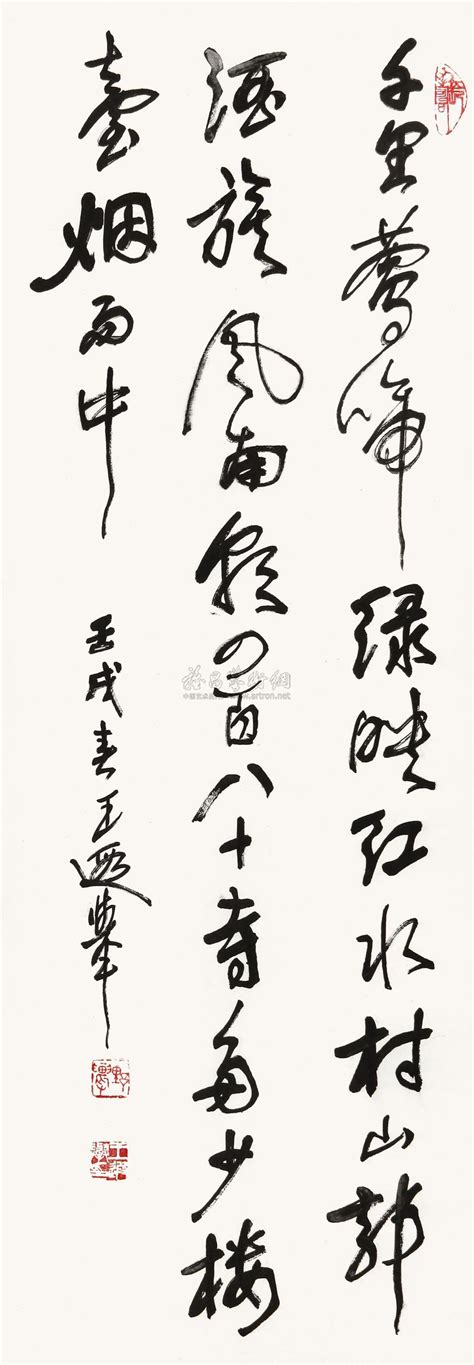 千里莺啼绿映红水村山郭
酒旗风南朝四百八十寺多少楼
臺烟雨中
壬戌春王遐举
雅昌艺术網
artron.net